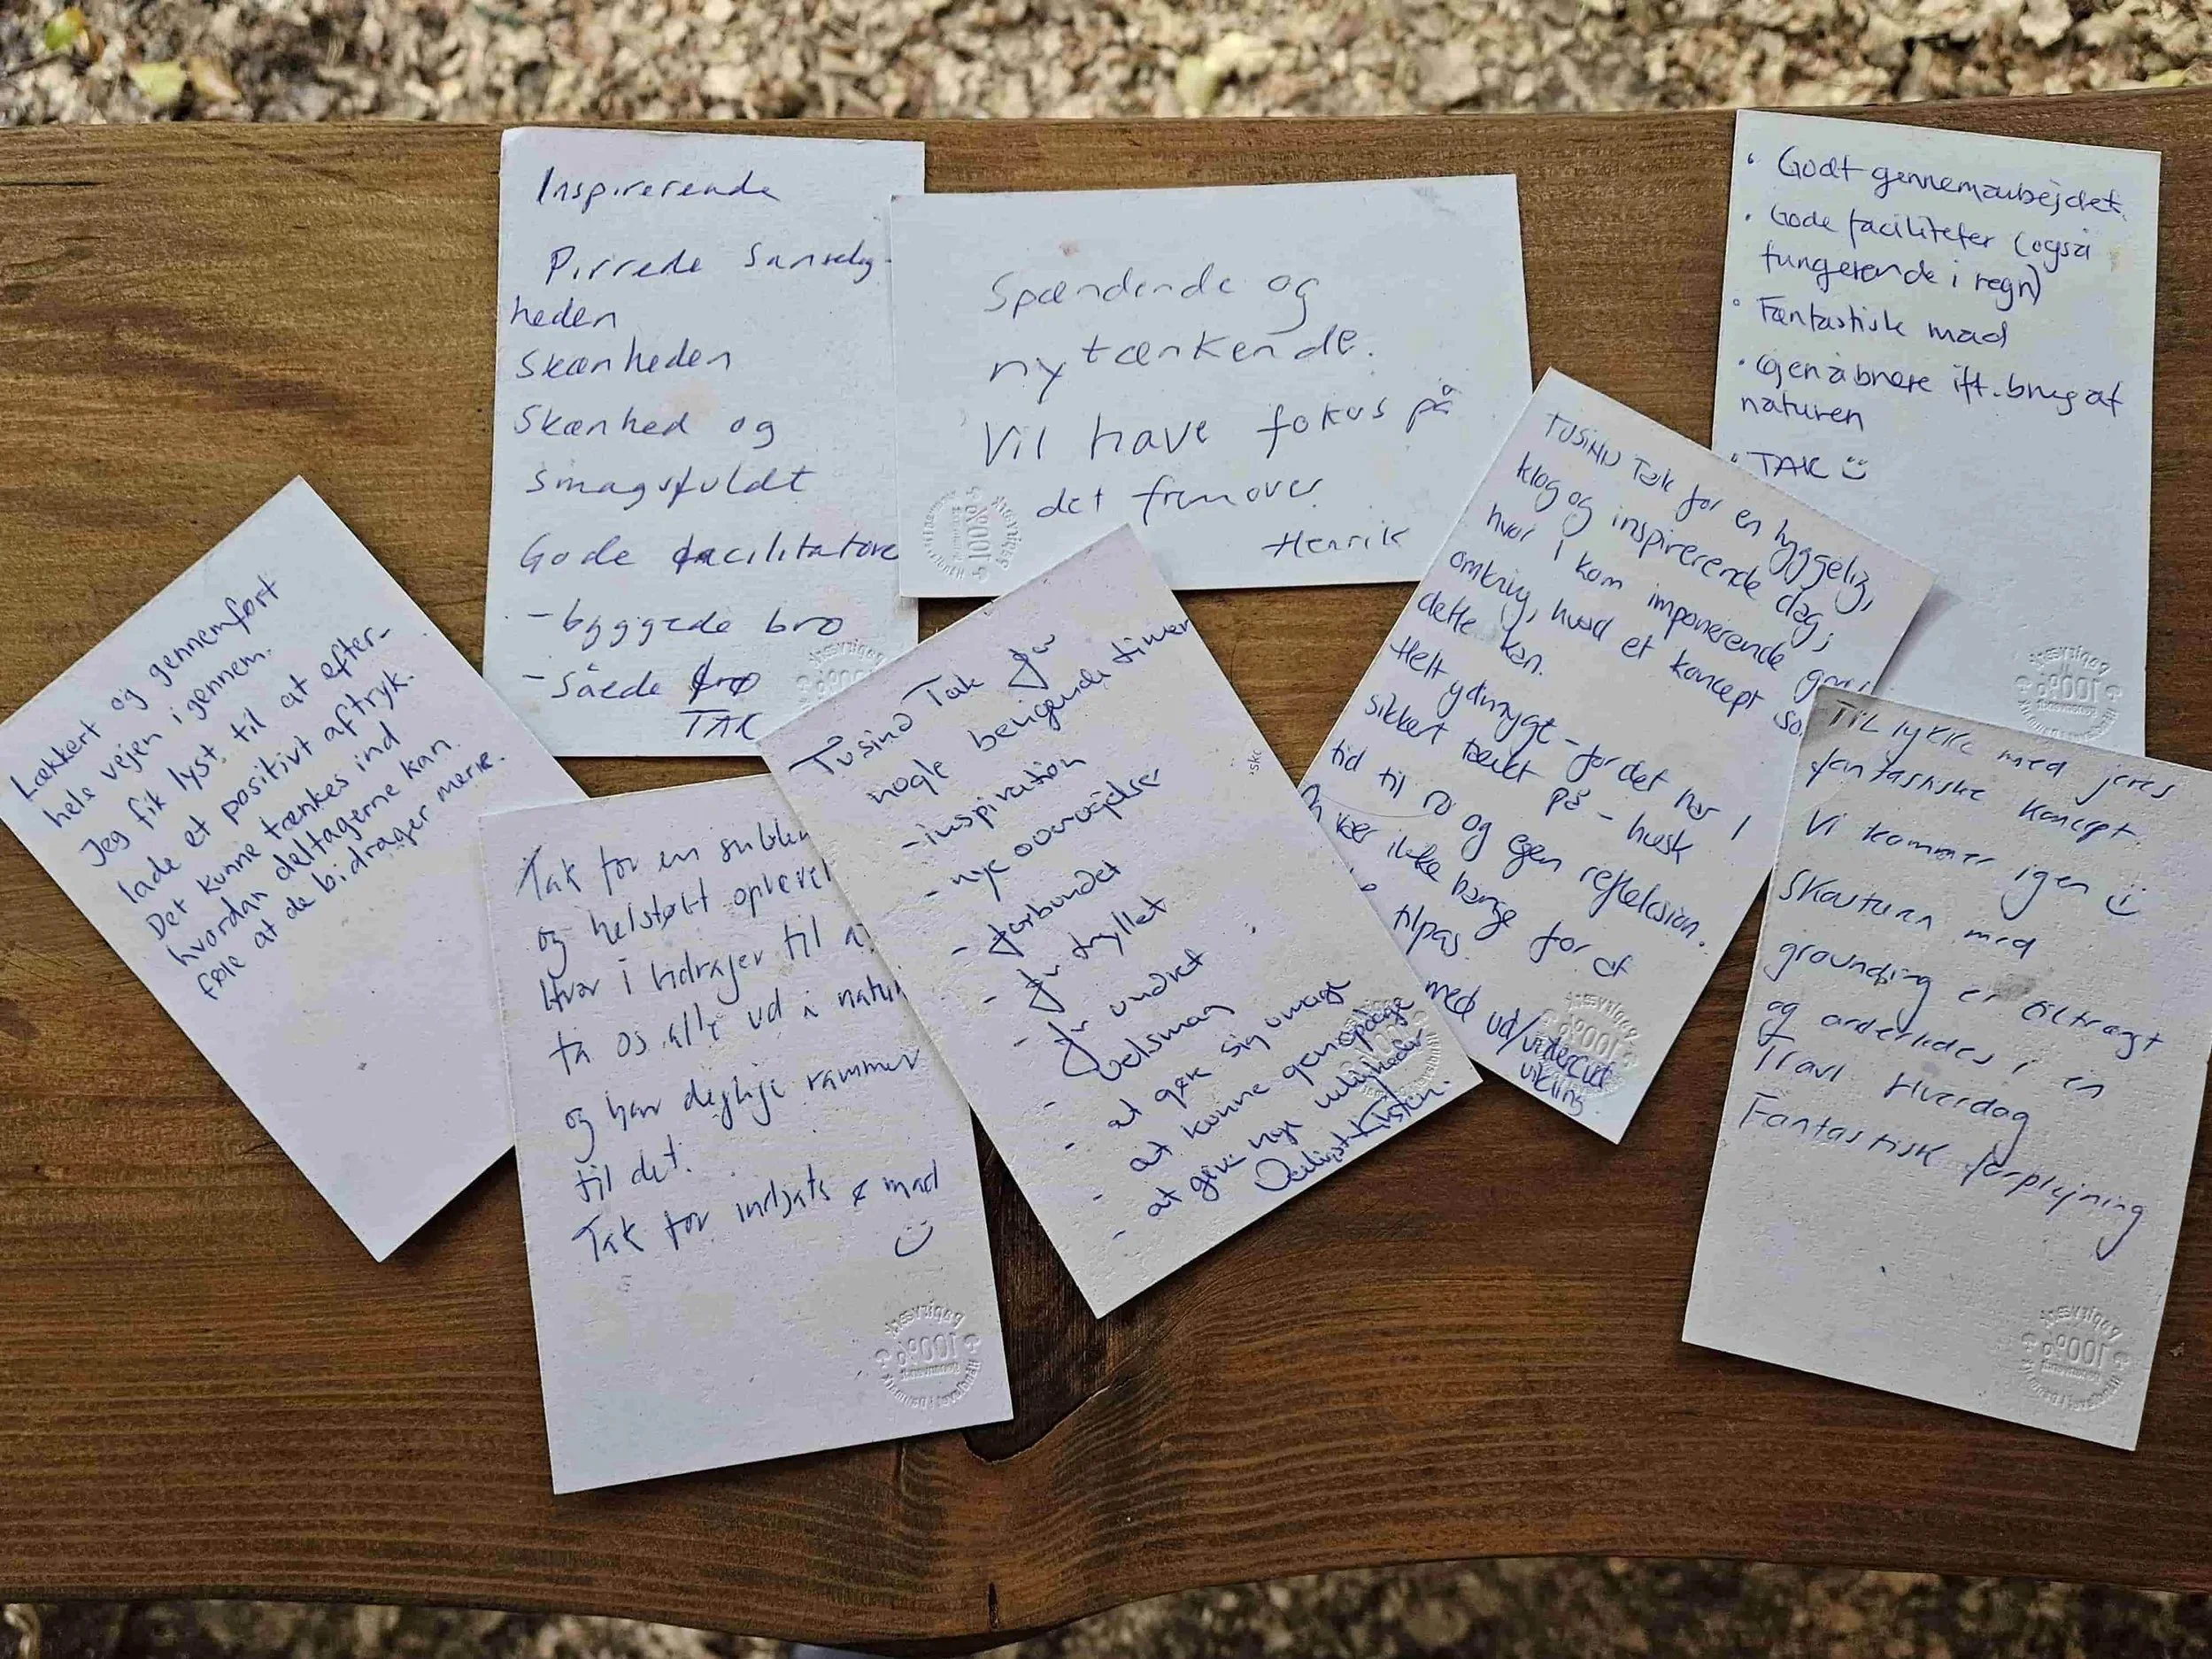 Inspirerende
Pirrede sanselig-
heden
Skønheden
Skønhed og
smagsfuldt
Gode facilitatore
- byggede bro
- såede
TAK
Spændende og
nytænkende.
Vil have fokus på
det fremover
Henrik
• Godt gennemarbejdet.
• Gode faciliteter (også
fungerende i regn)
• Fantastisk mad
• øjenåbnere ift. brug af
naturen
• TAK
Lækkert og gennemført
hele vejen igennem.
Jeg fik lyst til at efter-
lade et positivt aftryk.
Det kunne tænkes ind
hvordan deltagerne kan
føle at de bidrager mere.
Tak for en
og helstøbt
Hvor i bidrager til
få os alle ud i
og har dejlige rammer
til det.
Tak for indsats & mad
Tusind Tak for
nogle berigende timer
- inspiration
- nye overvejelser
- forbundet
- fortryllet
- forundret
- velsmag
- at gøre sig umage
- at kunne genopdage
- at give nye muligheder
TUSIND Tak for en hyggelig,
klog og inspirerende dag,
hvor I kom imponerende
omkring, hvad et koncept
dette kan.
Helt ydmygt - for det har I
sikkert tænkt på - husk
tid til ro og egen refleksion.
vær ikke bange for at
tilpas
med ud/
Til lykke med jeres
fantastiske koncept.
Vi kommer igen
Skovturen med
grounding er tiltrængt
og anderledes i en
Travl Hverdag
Fantastisk forplejning
papirværk
100%
Genanvendt
Håndlavet i Danmark
papirværk
100%
Genanvendt
Håndlavet i Danmark